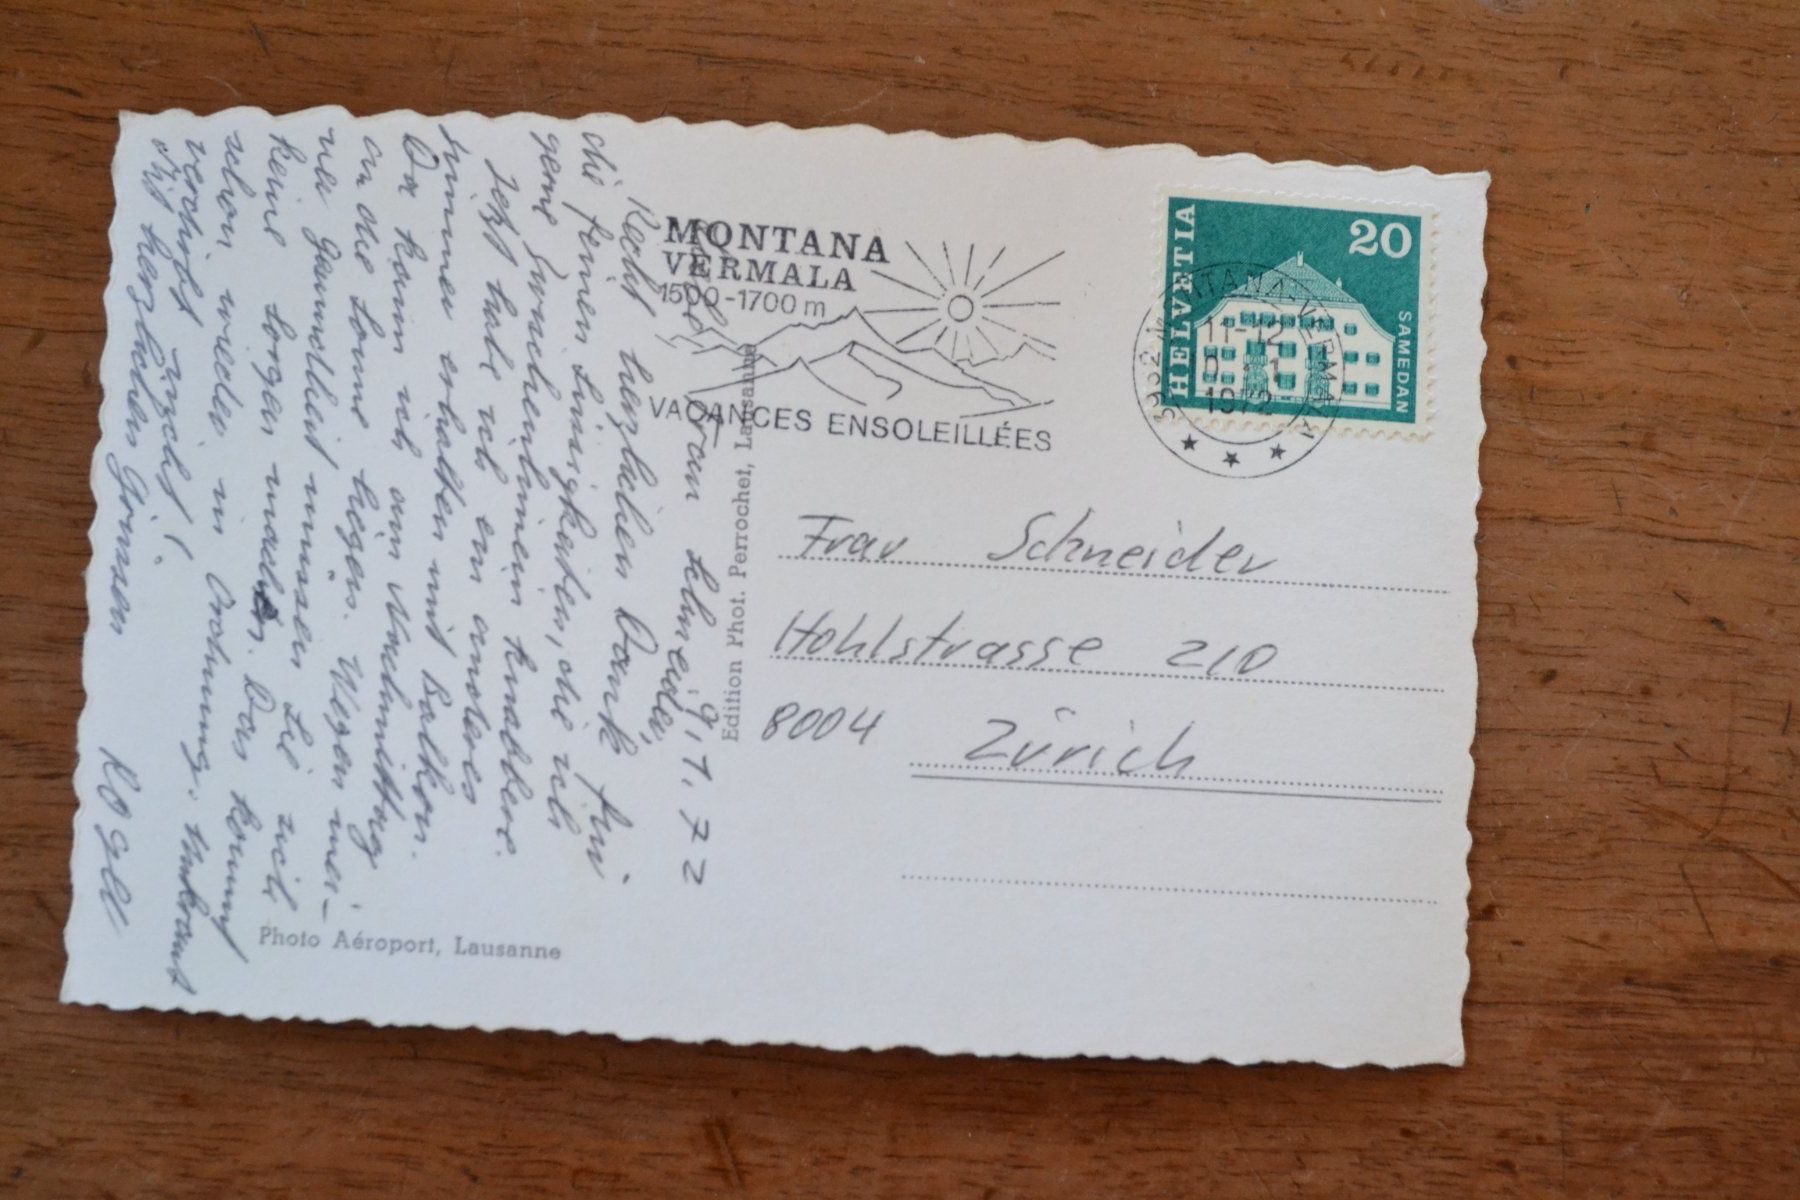 MONTANA
VERMALA
1500-1700 m
VACANCES ENSOLEILLÉES
HELVETIA
20
SAMEDAN
3962 MONTANA-VERMALA
11-12
1972
9.1.72
Frau Schneider,
Recht herzlichen Dank für
die feinen Süssigkeiten, die ich
gerne zwischenhinein knabbere.
Jetzt habe ich ein anderes
Zimmer erhalten mit Balkon.
Da kann ich am Nachmittag
an die Sonne liegen. Wegen mei-
ner Gesundheit müssen Sie sich
keine Sorgen machen. Das kommt
schon wieder in Ordnung. Unkraut
verdirbt nicht!
Mit herzlichen Grüssen
Edition Phot. Perrochet, Lausanne
Photo Aéroport, Lausanne
Frau Schneider
Hohlstrasse 210
8004 Zürich